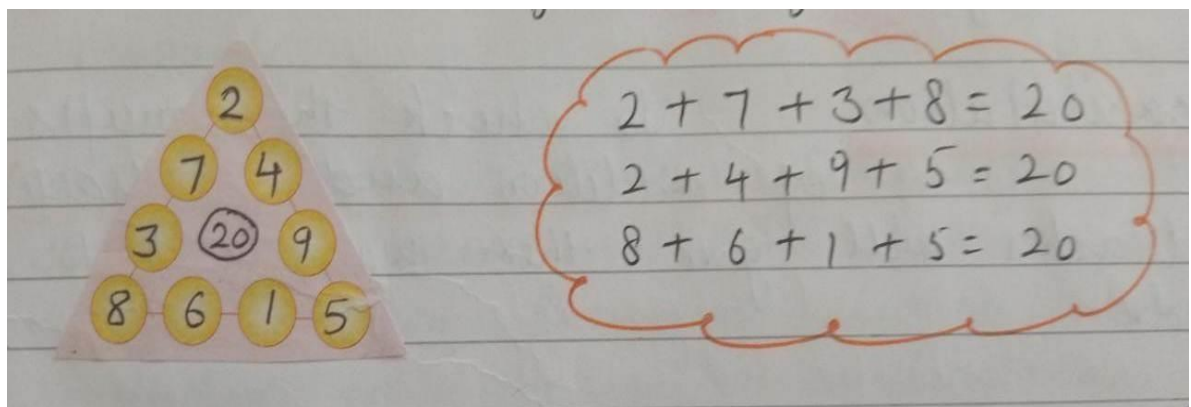 2
7 4
3 20 9
8 6 1 5
2 + 7 + 3 + 8 = 20
2 + 4 + 9 + 5 = 20
8 + 6 + 1 + 5 = 20